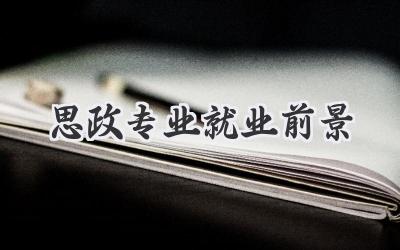 思政专业就业前景